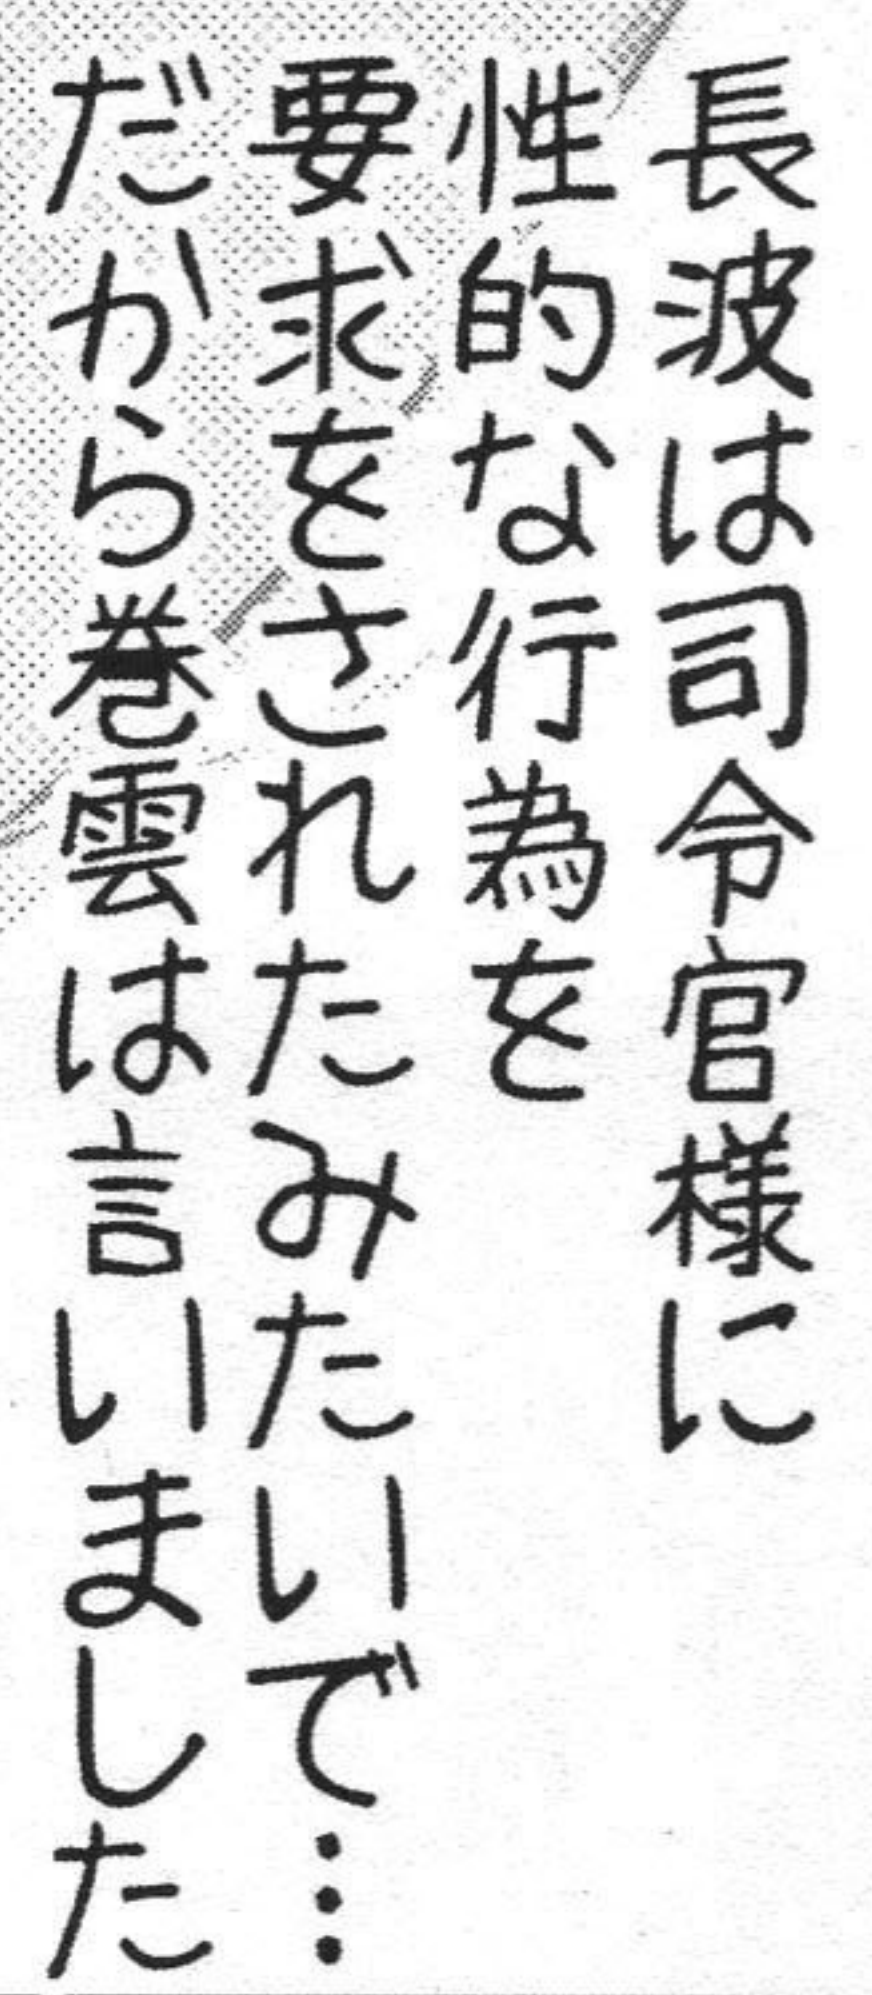 長波は司令官様に
性的な行為を
要求をされたみたいで…
だから巻雲は言いました